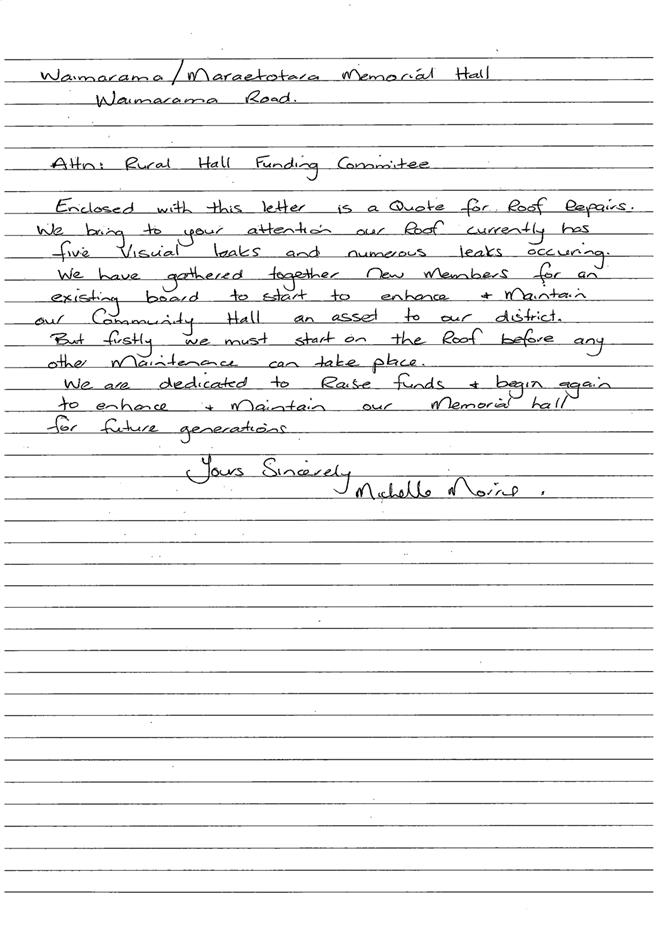 Waimarama/Maraetotara Memorial Hall
Waimarama Road.
Attn: Rural Hall Funding Committee
Enclosed with this letter is a Quote for Roof Repairs.
We bring to your attention our Roof currently has
five Visual leaks and numerous leaks occuring.
We have gathered together New Members for an
existing board to start to enhance + Maintain
our Community Hall an asset to our district.
But firstly we must start on the Roof before any
other Maintenance can take place.
We are dedicated to Raise funds + begin again
to enhance + Maintain our Memorial hall
for future generations
Yours Sincerely
Michelle